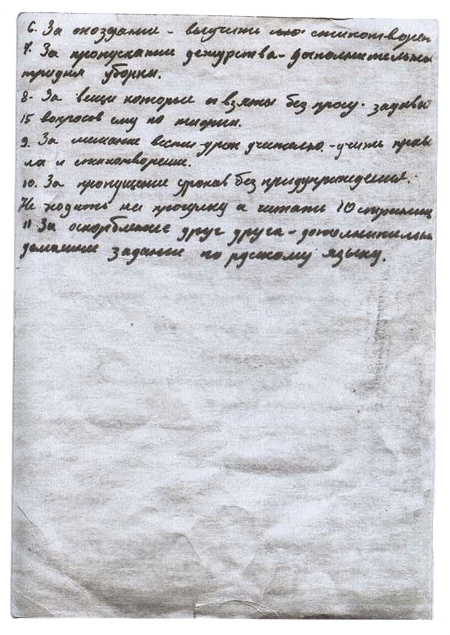 6. За опоздание - выучить стихотворен
7. За пропускании дежурства - дополнительны
тридня уборки.
8. За вещи которые взяты без просу - задават
15 вопросов ему по теории.
9. За мешание вести урок учителю - учить прави
ла и стихотворение.
10. За пропущение уроков без придупреждения.
Не ходить на прогулку и читать 10 страниц
11 За оскорбление друг друга - дополнительн
домашнее задание по русскому языку.